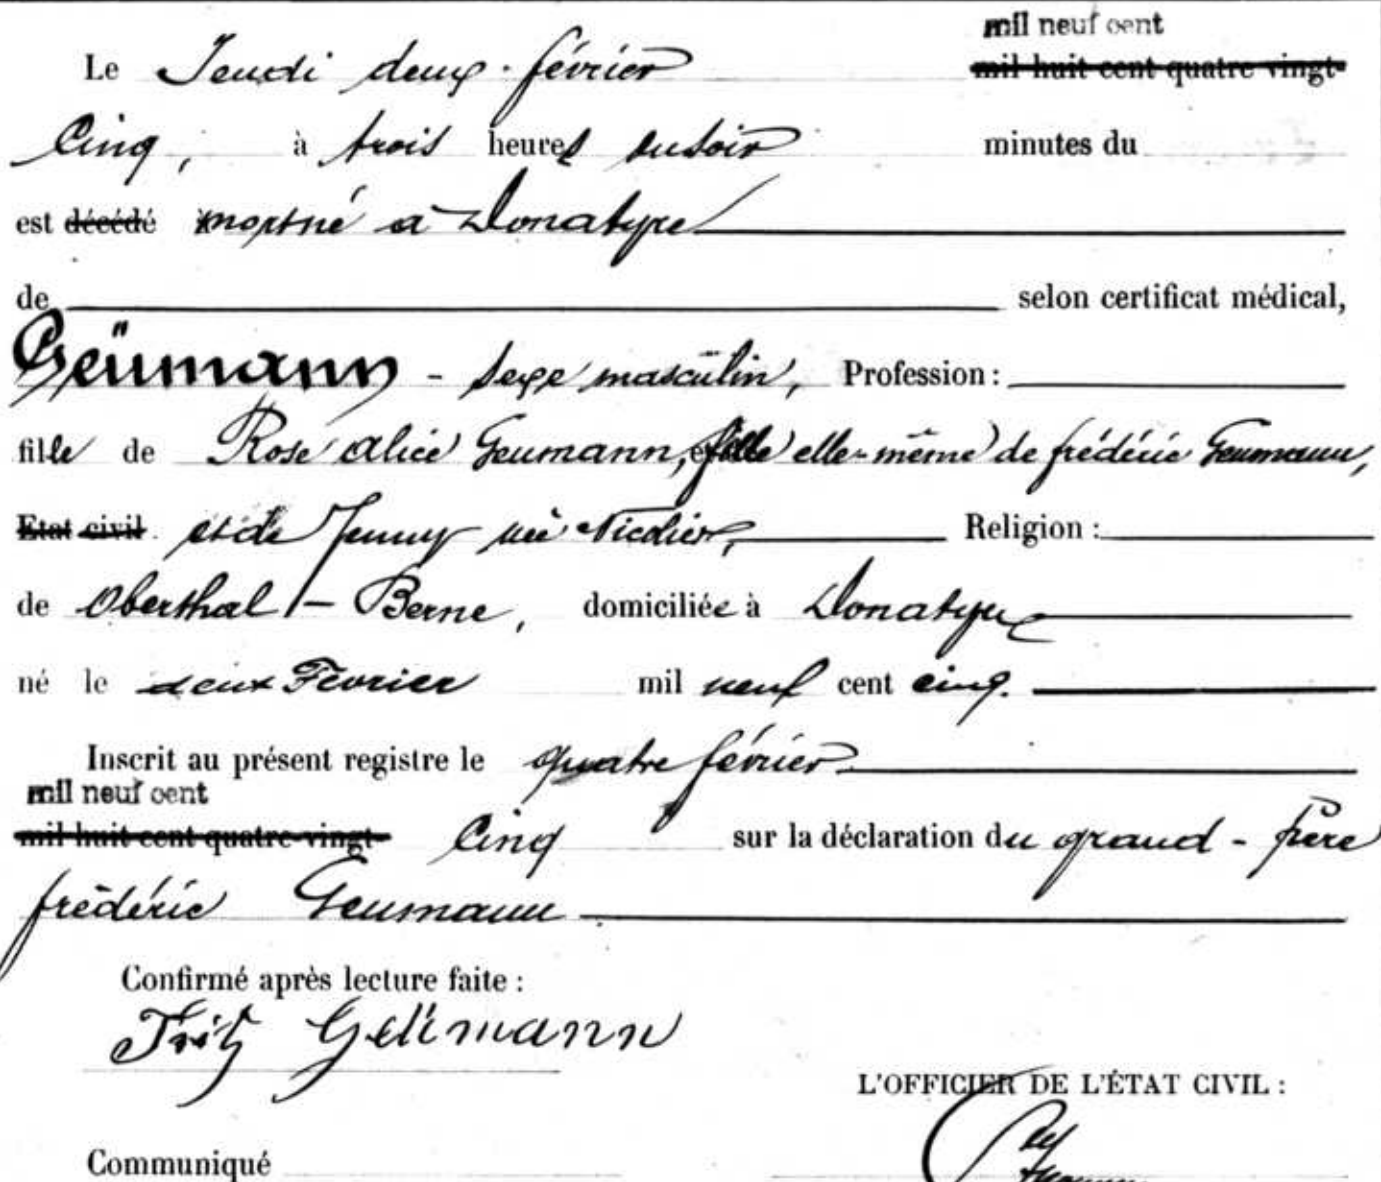 mil neuf cent
Le Jeudi deux février mil huit cent quatre vingt-
Cinq, à trois heures du soir minutes du
est décédé mort né à Donatyre
de selon certificat médical,
Geümann - sexe masculin, Profession :
fille de Rose Alice Geumann, fille elle-même de frédéric Geumann,
Etat civil et de Jenny née Nicolier, Religion :
de Oberthal - Berne, domiciliée à Donatyre
né le deux Février mil neuf cent cinq.
Inscrit au présent registre le quatre février
mil neuf cent
mil huit cent quatre-vingt- Cinq sur la déclaration du grand-père
frédéric Geumann
Confirmé après lecture faite :
Fritz Geümann
L'OFFICIER DE L'ÉTAT CIVIL :
Communiqué